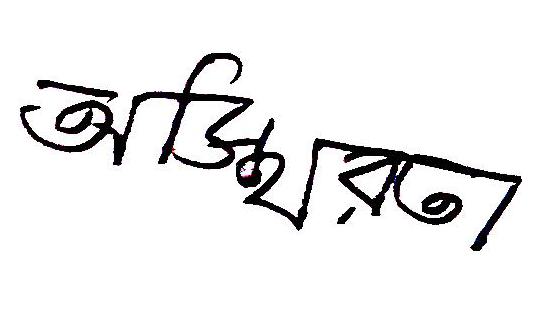 অস্থিরতা